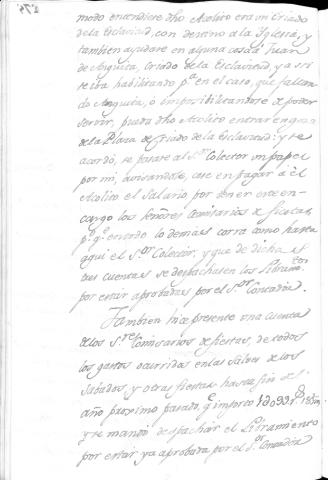 modo entendiere dho Acolito era un Criado
de la Esclavitud, con destino a la Iglesia, y
tambien ayudare en alguna cosa a Juan
de Anguita, Criado de la Esclavitud, y asi
se iva habilitando pa. en el caso, que faltan
do Anguita, ó imposibilitandose de poder
servir, pueda dho Acolito entrar en goze
de la Plaza de Criado de la Esclavitud; y se
acordó, se pasase al Sr. Colector un papel
por mi, avisandole, cese en pagar á él
Acolito el Salario, por tener este en-
cargo los Señores Comisarios de fiestas,
pa. qe. en todo lo demás corra como hasta
aqui el Sor. Colector, y que de dichas
tres cuentas se despachasen los Libramtos.
por estar aprobadas por el Sor. Contador.
Tambien hice presente una cuenta
de los Sres. Comisarios de fiestas, de todos
los gastos ocurridos en las Salves de los
Sabados, y otras fiestas hasta fin de el
año proximo pasado, qe. importó
y se mandó despachar el Libramiento
por estar ya aprobada por el Sor. Contador